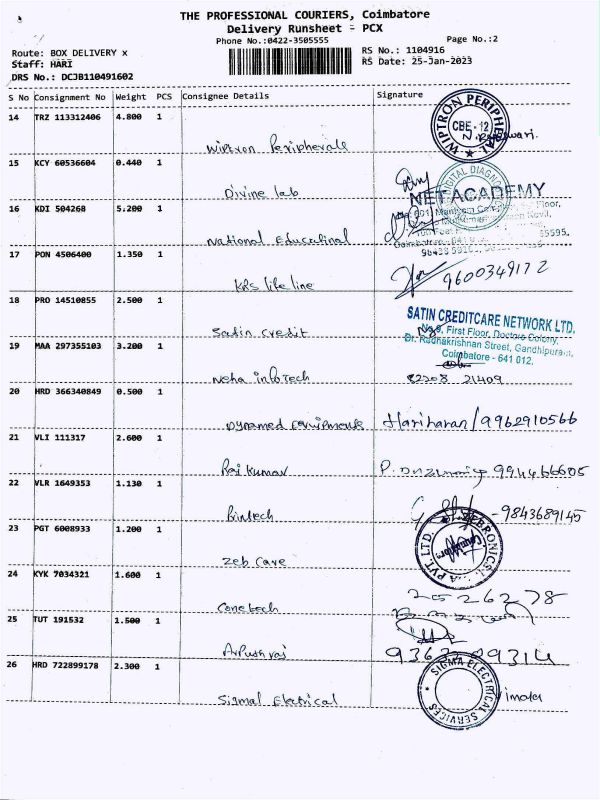 THE PROFESSIONAL COURIERS, Coimbatore
Delivery Runsheet - PCX
Phone No.:0422-3505555
Page No.:2
Route: BOX DELIVERY x
RS No.: 1104916
Staff: HARI
RS Date: 25-Jan-2023
DRS No.: DCJB110491602
S No Consignment No Weight PCS Consignee Details Signature
14 TRZ 113312406 4.800 1
WIPTRON PERIPHERAL
CBE - 12
Wiptron Peripherals
15 KCY 60536604 0.440 1
DIGITAL DIAGNO
Divine lab
NET ACADEMY
16 KDI 504268 5.200 1
Floor,
National Educational
17 PON 4506400 1.350 1
KRS life line
9600349172
18 PRO 14510855 2.500 1
SATIN CREDITCARE NETWORK LTD.
No.9, First Floor, Doctors Colony,
Satin Credit
Dr. Radhakrishnan Street, Gandhipuram,
19 MAA 297355103 3.200 1
Coimbatore - 641 012.
Neha infoTech
21409
20 HRD 366340849 0.500 1
Hariharan/9962910566
21 VLI 111317 2.600 1
Raj kumar
9944666605
22 VLR 1649353 1.130 1
Bintech
-9843689145
23 PGT 6008933 1.200 1
ZEBRONICS
A PVT. LTD.
Zeb Care
24 KYK 7034321 1.600 1
2526278
Conetech
25 TUT 191532 1.500 1
26 HRD 722899178 2.300 1
SIGMA ELECTRICAL SERVICES
Sigmal Electrical